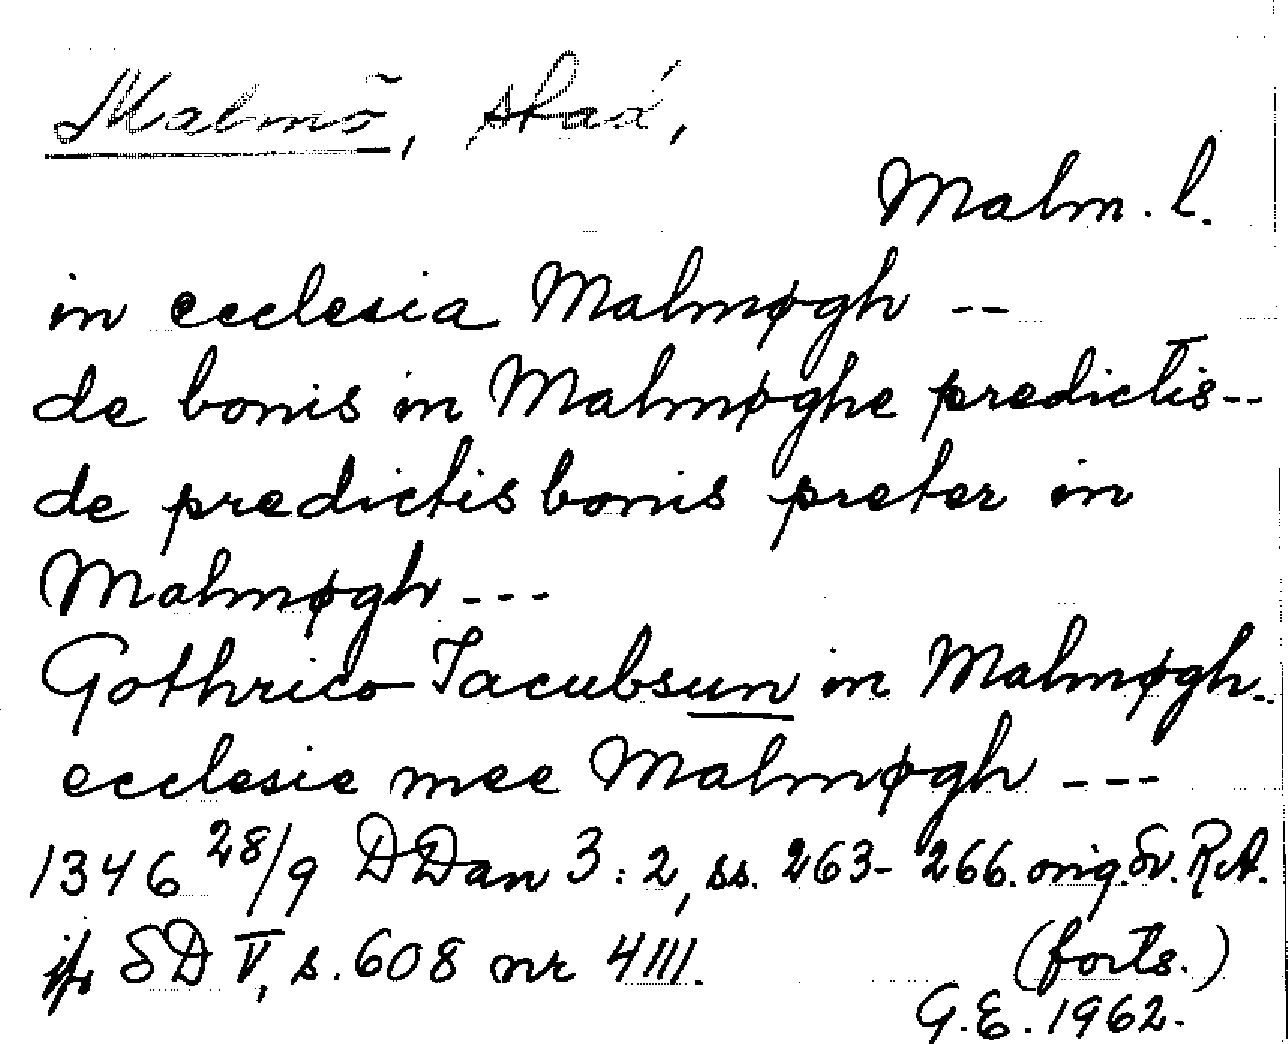 Malmö, stad,
Malm. l.
in ecclesia Malmøgh --
de bonis in Malmøghe predictis--
de predictis bonis preter in
Malmøgh ---
Gothrico Iacubsun in Malmøgh.
ecclesie mee Malmøgh ---
1346 28/9 DDan 3:2, ss. 263-266. orig. Sv. RA.
jfr SD V, s. 608 nr 4111.
(forts.)
G.E. 1962.